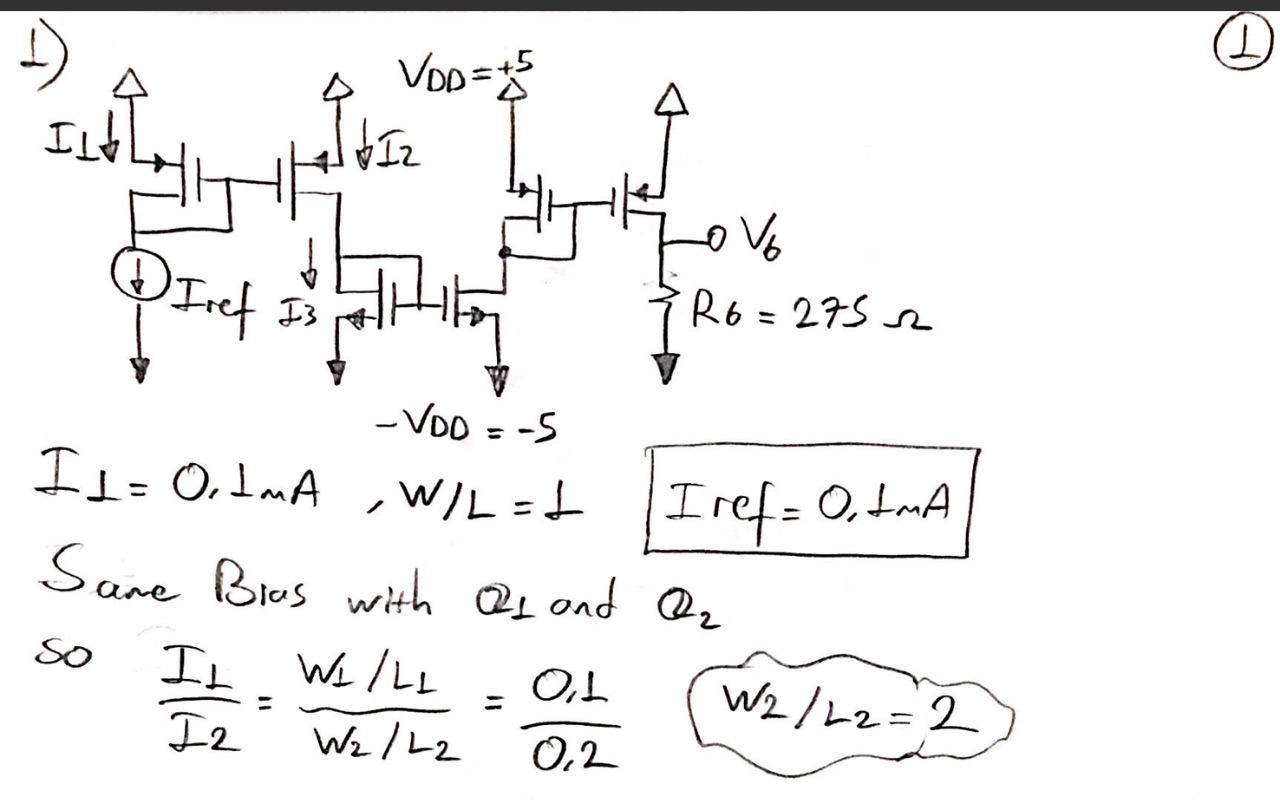 1)
1
VDD = +5
I1
I2
V6
Iref
I3
R6 = 275 Ω
-VDD = -5
I1 = 0,1mA , W/L = 1
Iref = 0,1mA
Same Bias with Q1 and Q2
so I1/I2 = W1/L1 / W2/L2 = 0,1/0,2
W2/L2 = 2